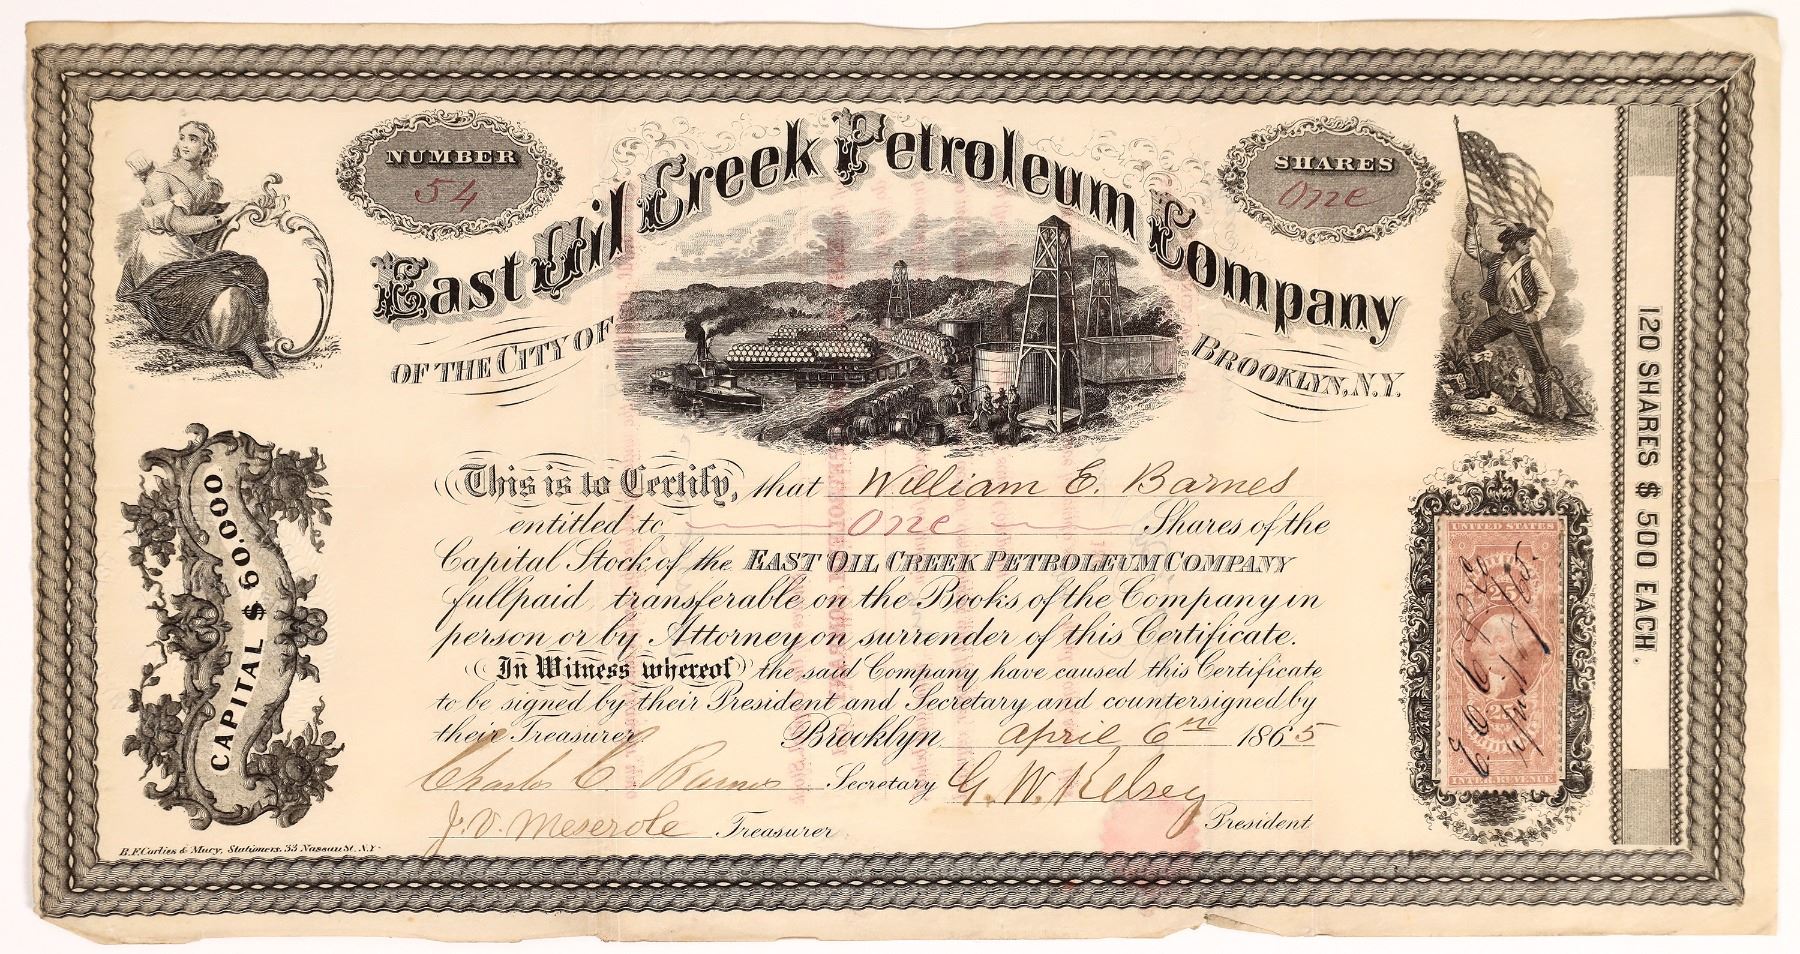 NUMBER
54
SHARES
One
East Oil Creek Petroleum Company
OF THE CITY OF BROOKLYN, N.Y.
CAPITAL $ 60.000
120 SHARES $ 500 EACH.
This is to Certify, that William E. Barnes
entitled to One Shares of the
Capital Stock, of the EAST OIL CREEK PETROLEUM COMPANY
fullpaid, transferable on the Books of the Company in
person or by Attorney on surrender of this Certificate.
In Witness whereof the said Company have caused this Certificate
to be signed by their President and Secretary and countersigned by
their Treasurer. Brooklyn April 6th 1865
Charles C. Barnes Secretary G. W. Kelsey
President
J. V. Meserole Treasurer
B. F. Corlies & Macy, Stationers, 33 Nassau St. N.Y.
UNITED STATES
INTER. REVENUE
E. O. C. P. Co
April 6/65.